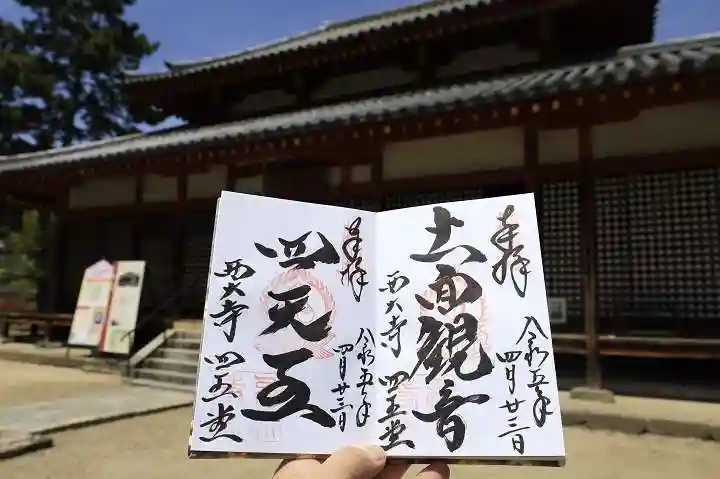 奉拝
令和五年
四月廿三日
十一面観音
西大寺 四王堂
奉拝
令和五年
四月廿三日
四天王
西大寺 四王堂